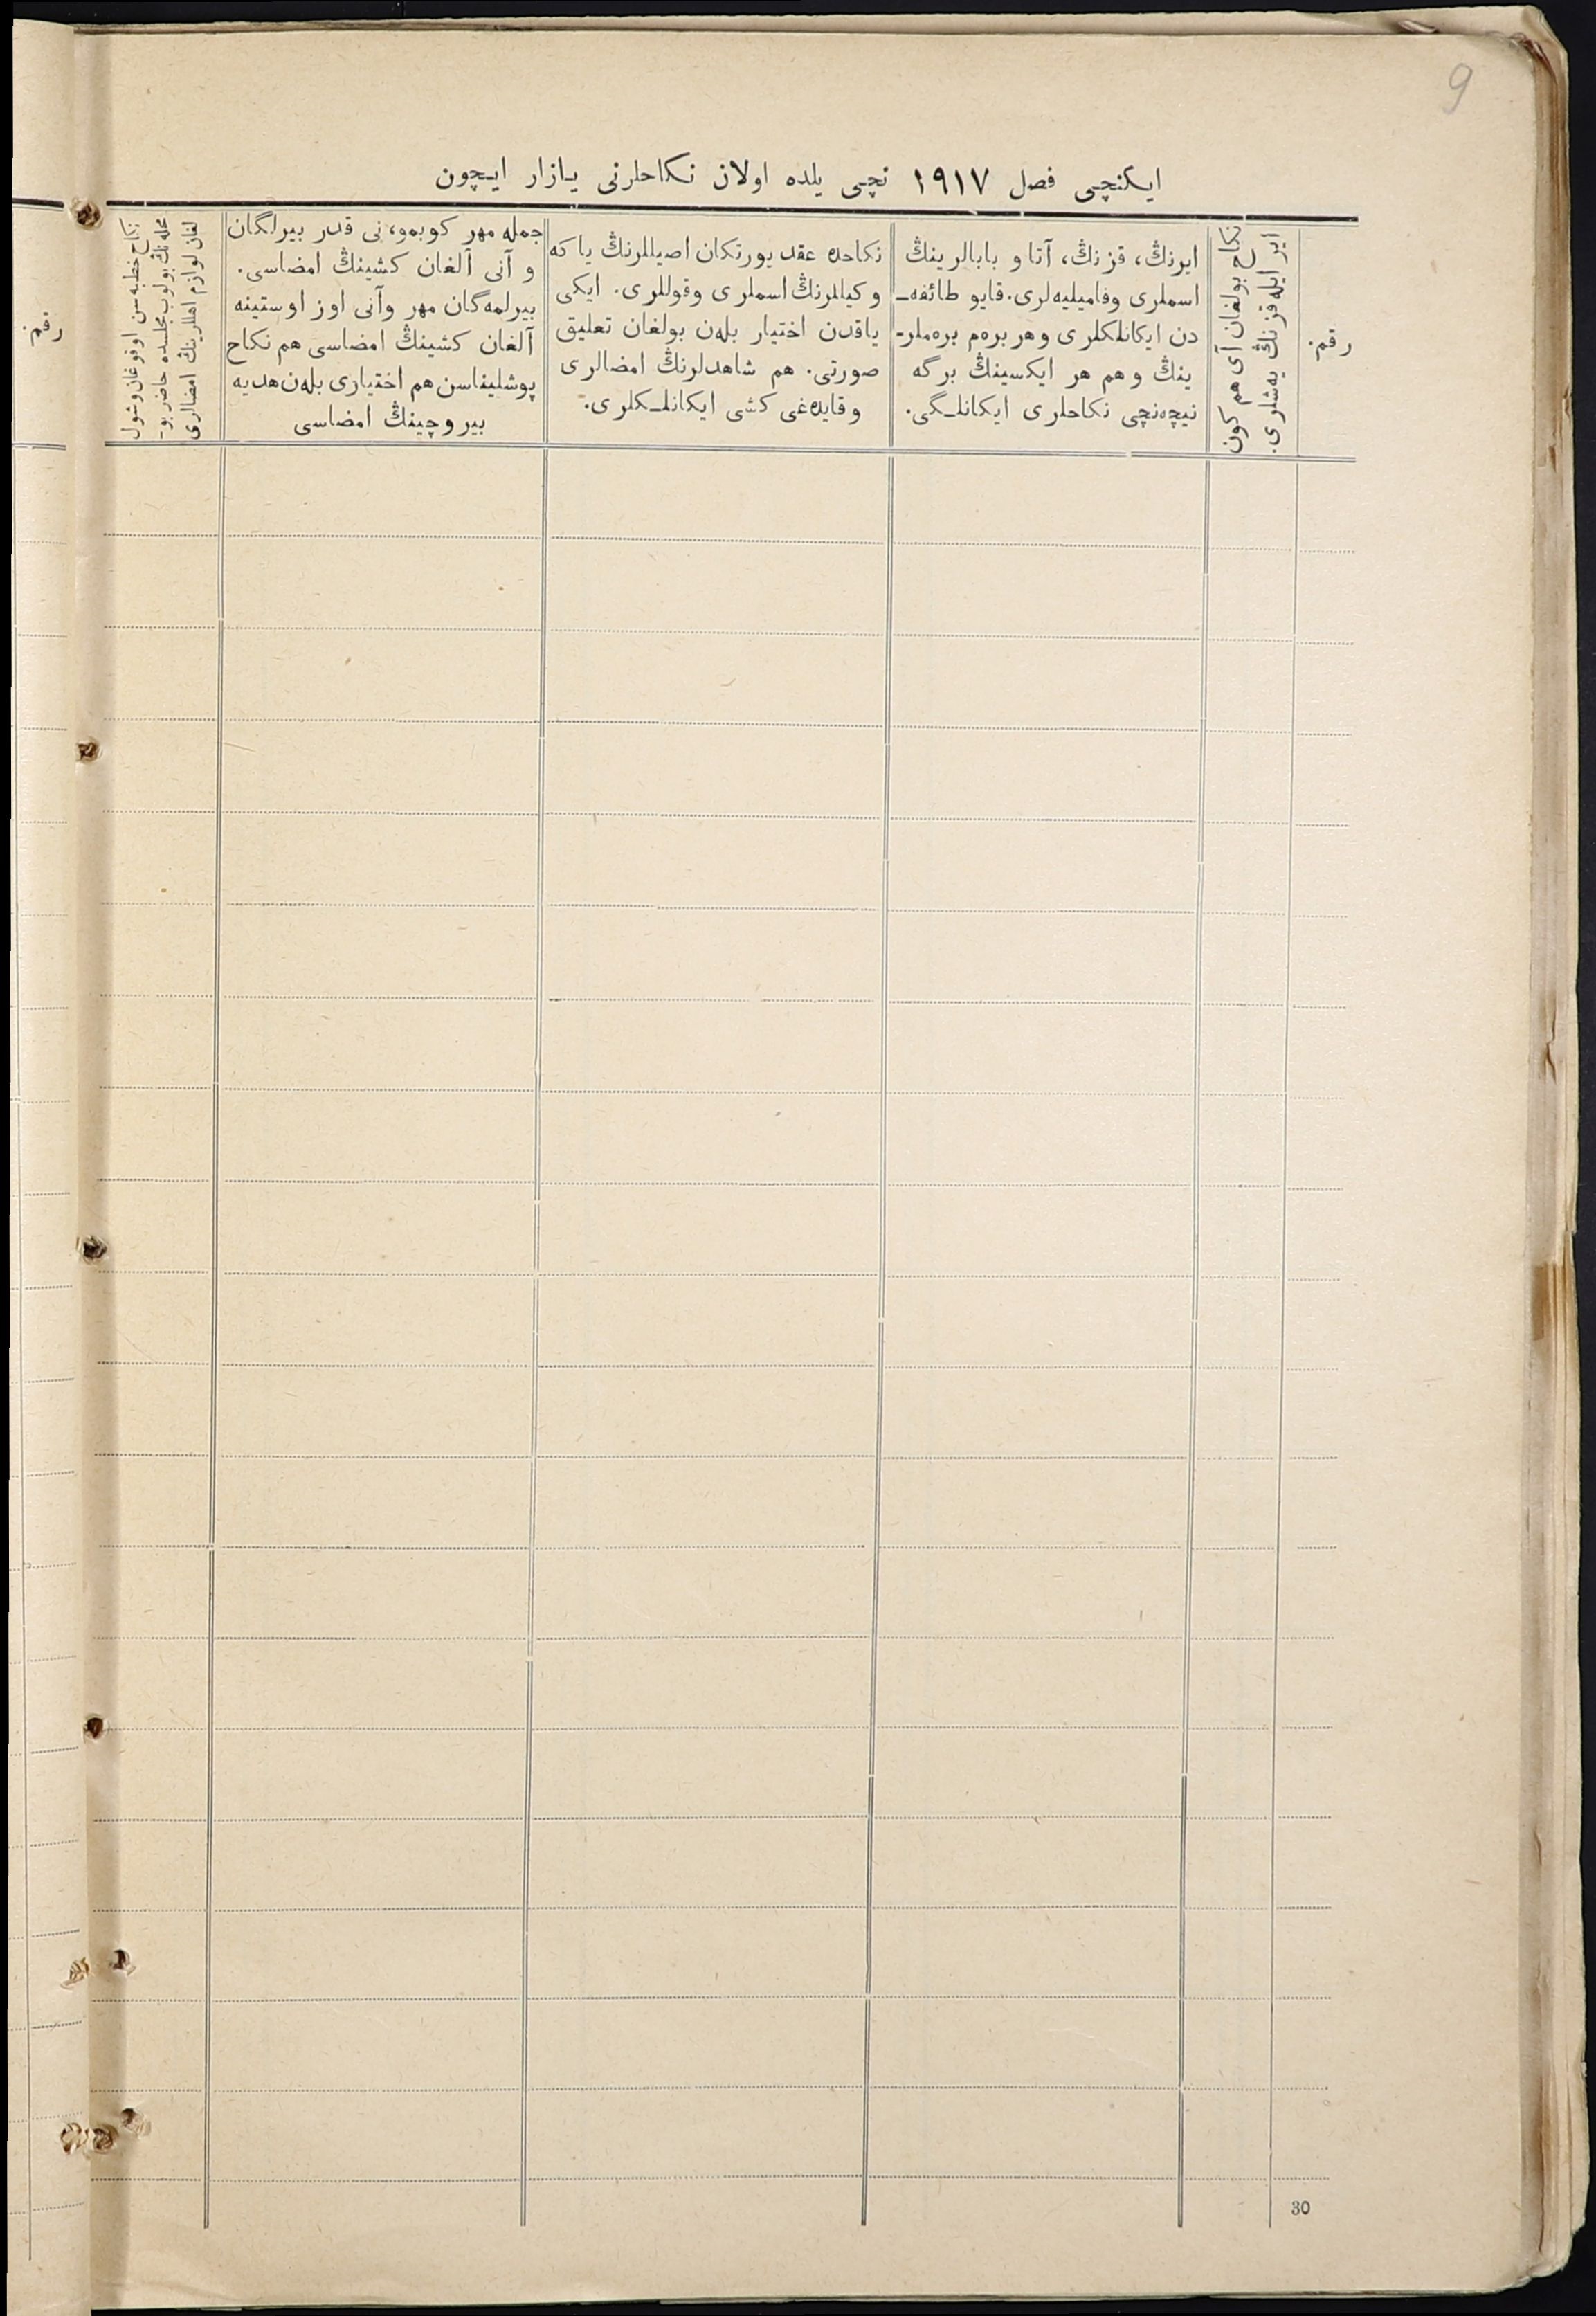 9
ایکنچی فصل ١٩١٧ نچی یلده اولان نکاحلرنی یازار ایچون
رقم.
ایر ایله قزنڭ یەشلری.
نکاح بولغان آی هم کون
ایرنڭ، قزنڭ، آتا و بابالرینڭ
اسملری وفامیلیەلری. قایو طائفه‌ـ
دن ایکانلکلری وهر برەم برەملرـ
ینڭ وهم هر ایکسینڭ برگه
نیچەنچی نکاحلری ایکانلـگی.
نکاحده عقد یورتکان اصیللرنڭ یا که
وکیللرنڭ اسملری وقوللری. ایکی
یاقدن اختیار بلەن بولغان تعلیق
صورتی. هم شاهدلرنڭ امضالری
وقایدەغی کشی ایکانلـکلری.
جمله مهر کوبمو، نی قدر بیرلگان
و آنی آلغان کشینڭ امضاسی.
بیرلمەگان مهر وآنی اوز اوستینه
آلغان کشینڭ امضاسی هم نکاح
پوشلیناسن هم اختیاری بلەن هدیه
بیروچینڭ امضاسی
نکاح خطبەسن اوقوغان وشول
محلەنڭ بولوب مجلسده حاضر بوـ
لغان لوازم اهللرینڭ امضالری
رقم.
30